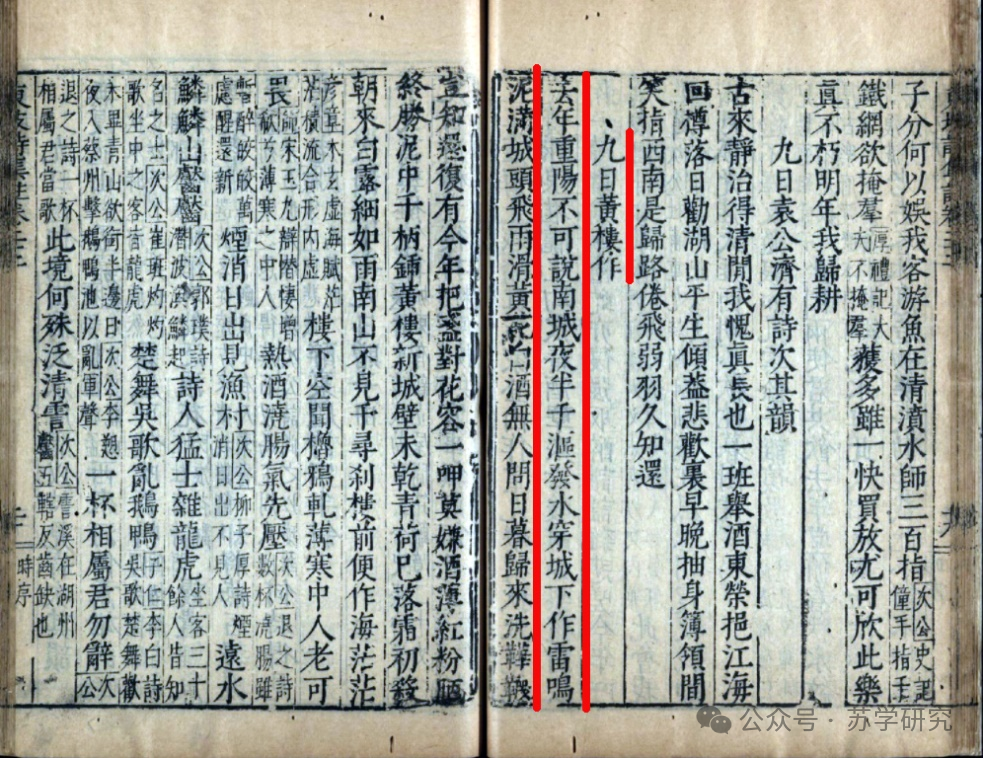 子分何以娛我客游魚在清濆水師三百指次公史記僮手指千
鐵網欲掩羣厚禮記大夫不掩羣獲多雖一快買放尤可欣此樂
真不朽明年我歸耕
九日袁公濟有詩次其韻
古來靜治得清閒我愧真長也一班舉酒東榮挹江海
回樽落日勸湖山平生傾蓋悲歡裏早晚抽身簿領間
笑指西南是歸路倦飛弱羽久知還
九日黃樓作
去年重陽不可說南城夜半千漚發水穿城下作雷鳴
泥滿城頭飛雨滑黃花白酒無人問日暮歸來洗鞾韈
豈知還復有今年把盞對花容一呷莫嫌酒薄紅粉陋
終勝泥中千柄鍤黃樓新城壁未乾青荷已落霜初殺
朝來白露細如雨南山不見千尋刹樓前便作海茫茫
彥章木玄虛海賦茫茫積流合形內虛樓下空聞櫓鴉軋薄寒中人老可
畏厚宋玉九辯憯悽增欷兮薄寒之中人熱酒澆腸氣先壓次公退之詩數杯澆腸雖
暫醉皎皎萬慮醒還新煙消日出見漁村次公柳子厚詩煙消日出不見人遠水
鱗鱗山齾齾次公郭璞詩潛波渙鱗起詩人猛士雜龍虎坐客三十餘人皆知
名之士次公崔班灼灼歌坐中之客皆龍虎楚舞吳歌亂鵝鴨子仁李白詩吳歌楚舞歡
未畢青山欲銜半邊日次公李愬夜入蔡州擊鵝鴨池以亂軍聲一杯相屬君勿辭次公
退之詩一杯相屬君當歌此境何殊泛清霅次公霅溪在湖州齾五轄反齒缺也
時序
公众号·苏学研究